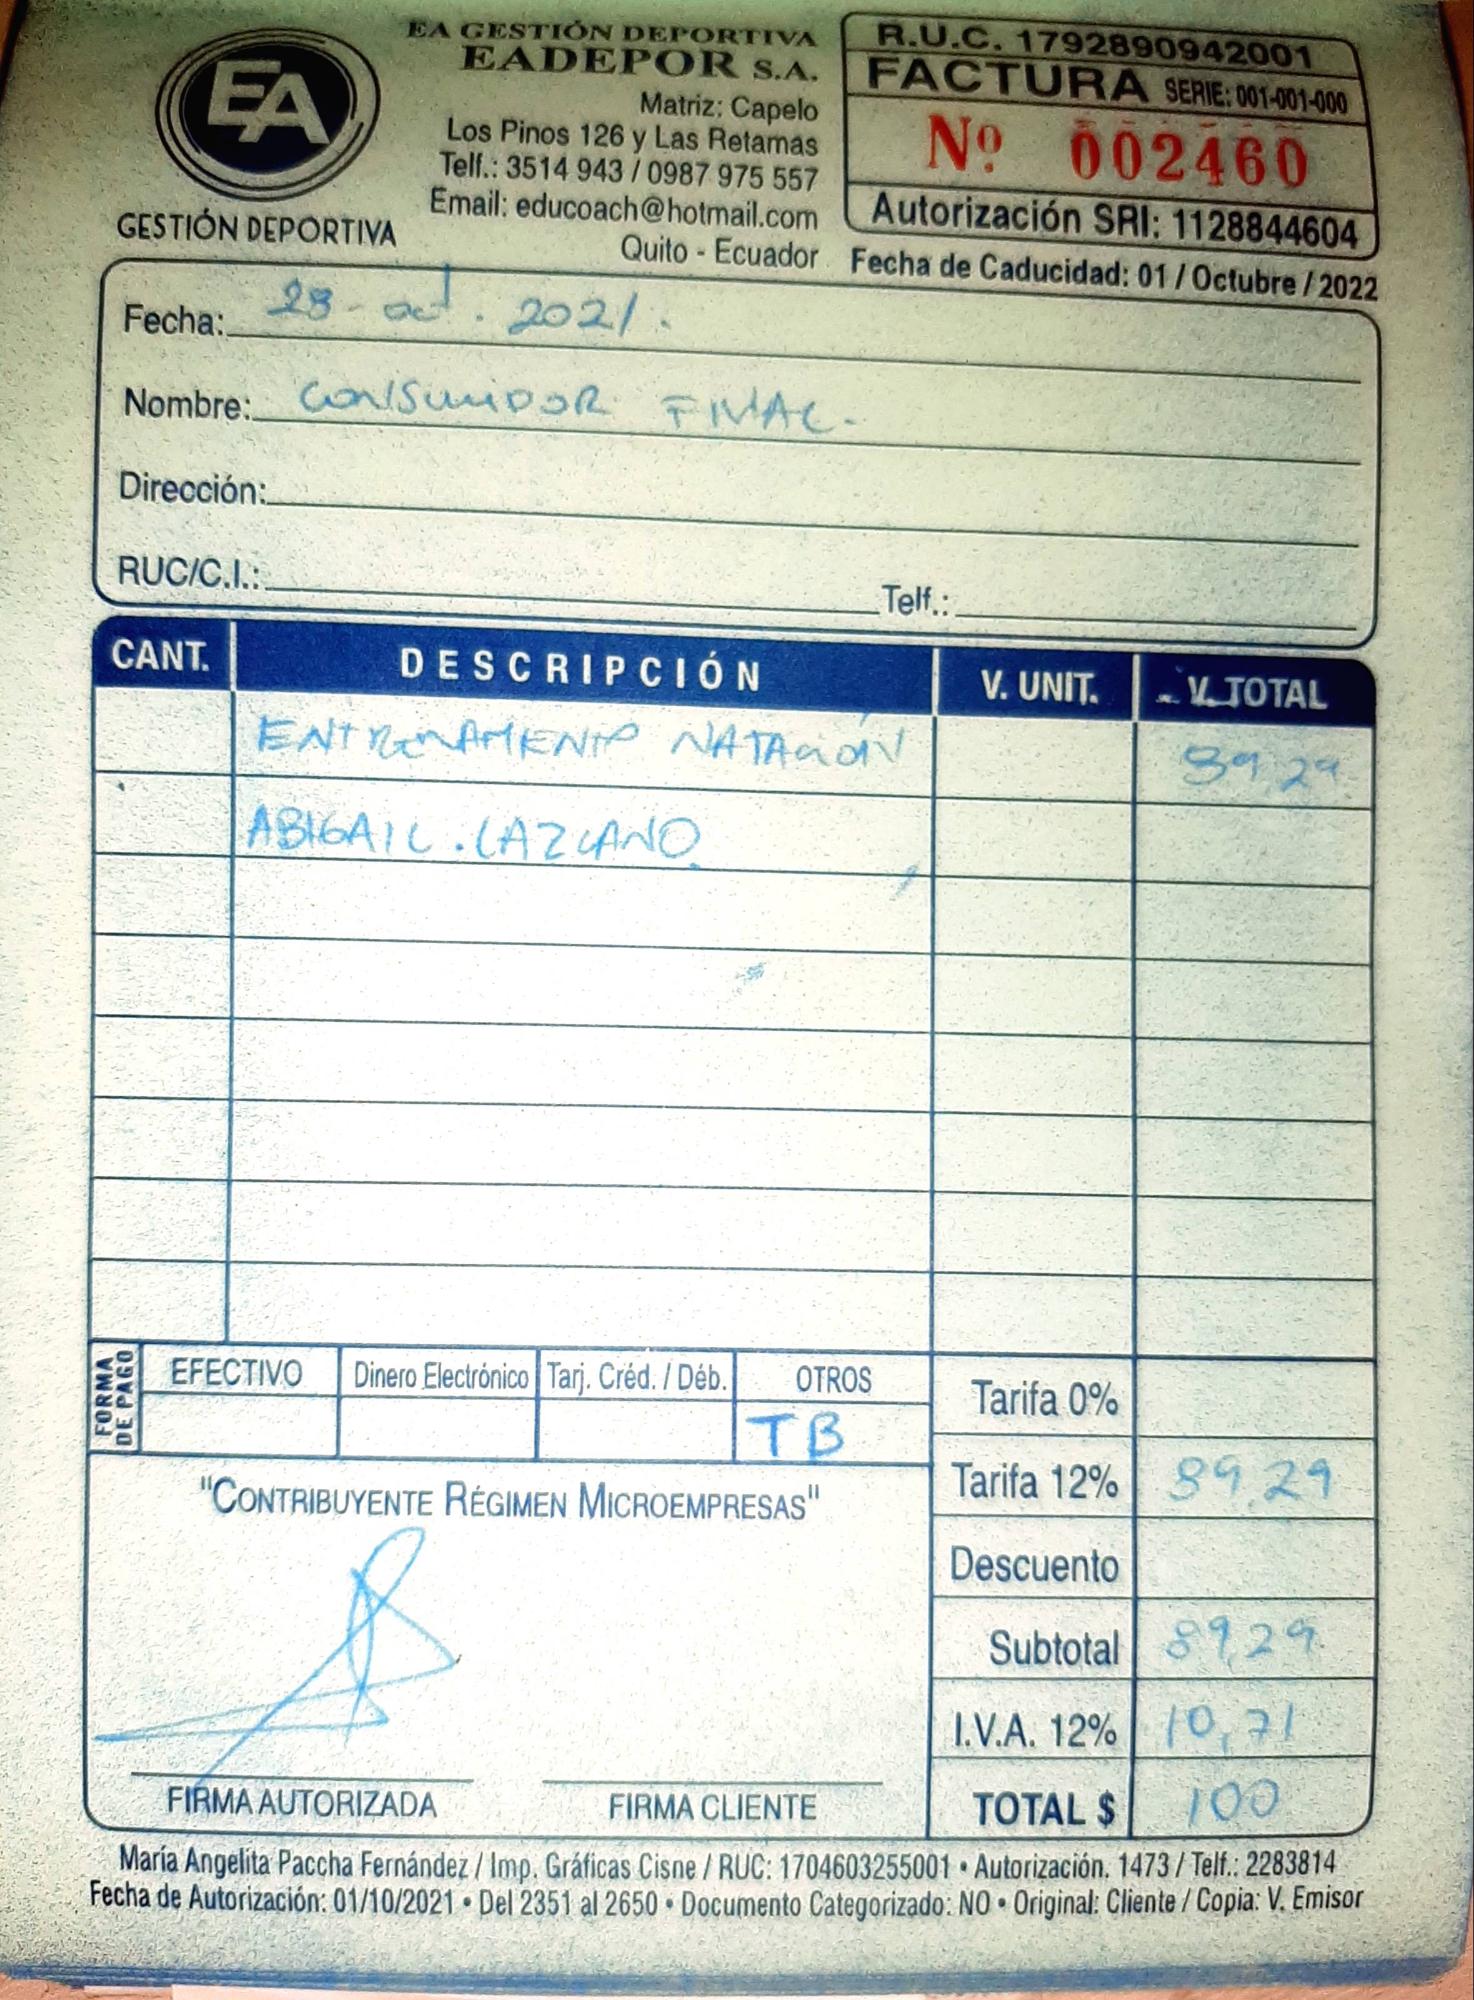 EA
GESTIÓN DEPORTIVA
EA GESTIÓN DEPORTIVA
EADEPOR S.A.
Matriz: Capelo
Los Pinos 126 y Las Retamas
Telf.: 3514 943 / 0987 975 557
Email: educoach@hotmail.com
Quito - Ecuador
R.U.C. 1792890942001
FACTURA SERIE: 001-001-000
Nº 002460
Autorización SRI: 1128844604
Fecha de Caducidad: 01 / Octubre / 2022
Fecha: 28 - oct . 2021.
Nombre: CONSUMIDOR FINAL.
Dirección:
RUC/C.I.: Telf.:
CANT. DESCRIPCIÓN V. UNIT. V. TOTAL
ENTRENAMIENTO NATACIÓN 89,29
ABIGAIL . LAZCANO
FORMA DE PAGO
EFECTIVO Dinero Electrónico Tarj. Créd. / Déb. OTROS
TB
Tarifa 0%
Tarifa 12% 89,29
Descuento
Subtotal 89,29
I.V.A. 12% 10,71
TOTAL $ 100
"CONTRIBUYENTE RÉGIMEN MICROEMPRESAS"
FIRMA AUTORIZADA FIRMA CLIENTE
María Angelita Paccha Fernández / Imp. Gráficas Cisne / RUC: 1704603255001 • Autorización. 1473 / Telf.: 2283814
Fecha de Autorización: 01/10/2021 • Del 2351 al 2650 • Documento Categorizado: NO • Original: Cliente / Copia: V. Emisor